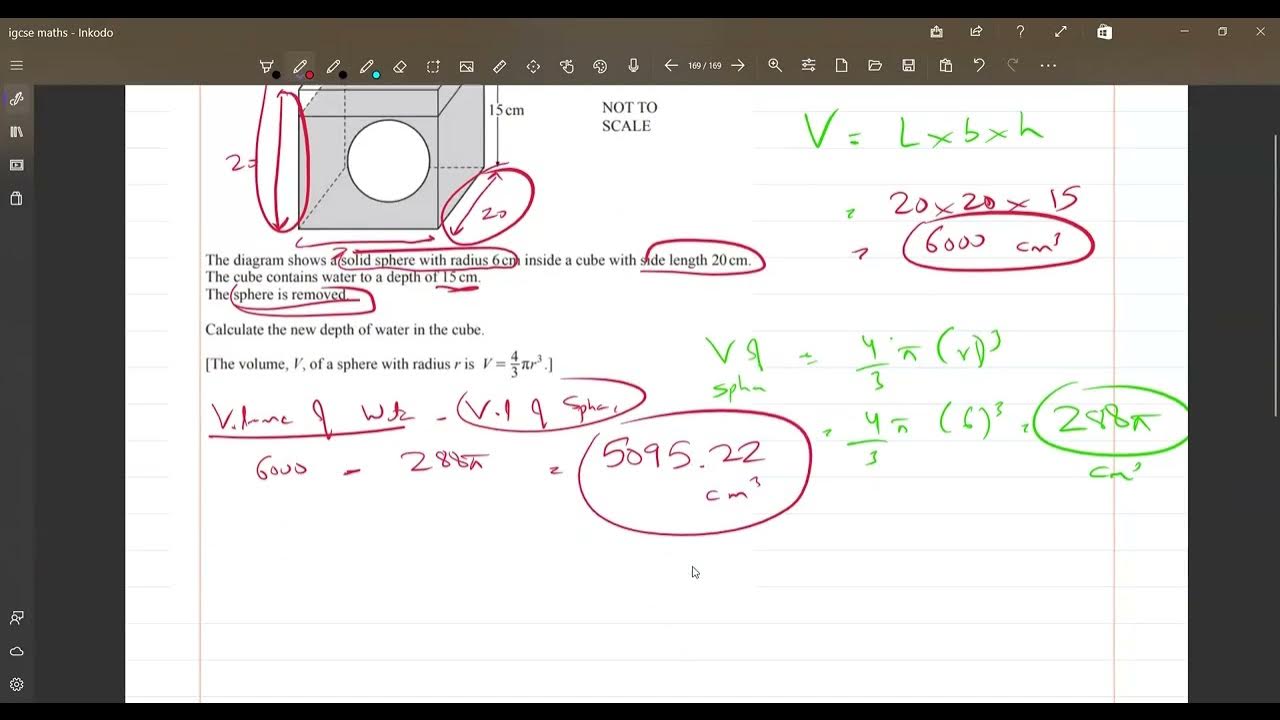 igcse maths - Inkodo
169 / 169
15 cm
NOT TO
SCALE
V = L x b x h
2
20
= 20 x 20 x 15
= 6000 cm³
The diagram shows a solid sphere with radius 6 cm inside a cube with side length 20 cm.
The cube contains water to a depth of 15 cm.
The sphere is removed.
Calculate the new depth of water in the cube.
[The volume, V, of a sphere with radius r is V = 4/3 πr³.]
V of = 4/3 π (r)³
= 4/3 π (6)³ = 288π
cm³
Volume of - (Vol of
6000 - 288π = 5095.22
cm³